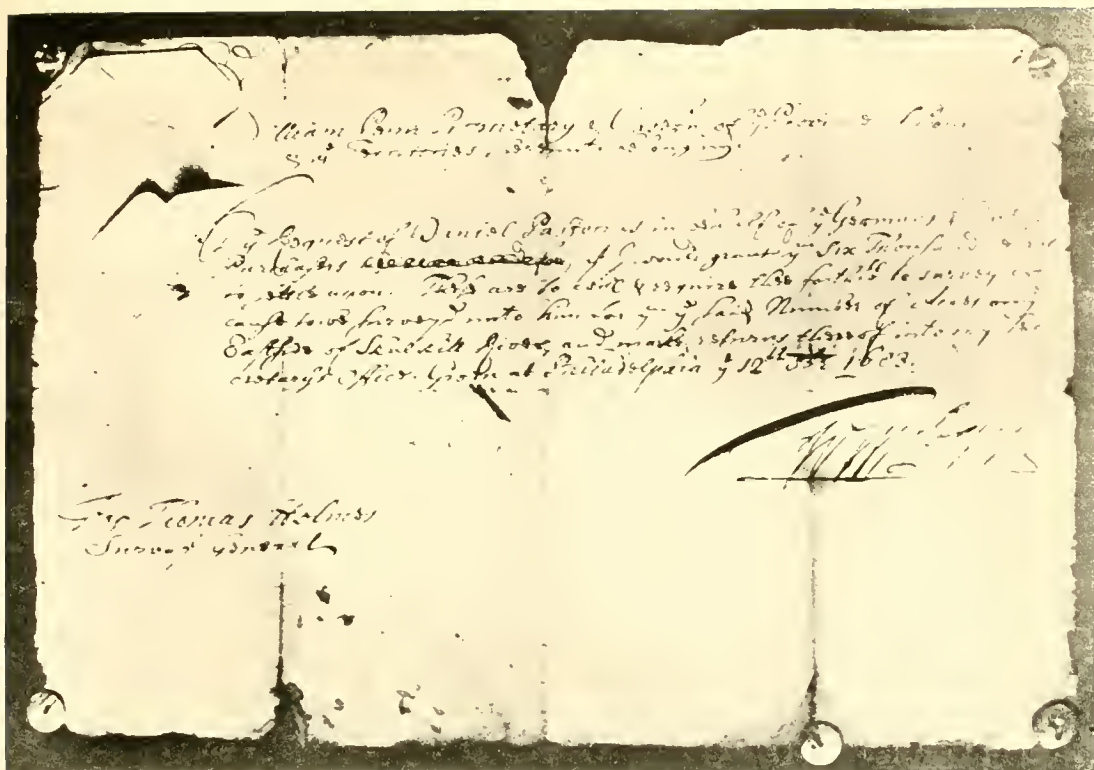 William Penn Proprietary & Govern. of yᵉ Province
& yᵉ Territories
yᵉ Request of Daniel Pastorius in behalf of yᵉ Germans &
Purchasers yᵗ I would grant yᵐ Six Thousand
upon. These are to will & require thee forthwith to survey or
cause to be survey'd unto him for yᵐ yᵉ said Number of Acres on yᵉ
East side of Skulkill River, and make returns thereof into my Se
cretary's Office. Given at Philadelphia yᵉ 12ᵗʰ 1683.
Wm Penn
For Thomas Holmes
Survey'r General